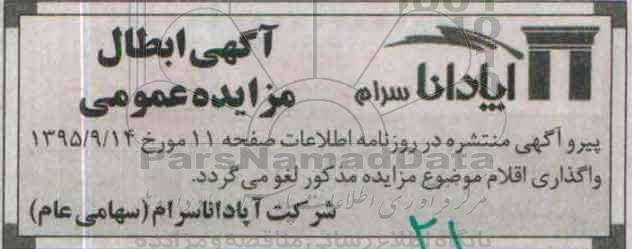 آپادانا سرام
آگهی ابطال
مزایده عمومی
پیرو آگهی منتشره در روزنامه اطلاعات صفحه ۱۱ مورخ ۱۳۹۵/۹/۱۴
واگذاری اقلام موضوع مزایده مدکور لغو می گردد.
شرکت آپاداناسرام (سهامی عام)
ParsNamadData
۲۱